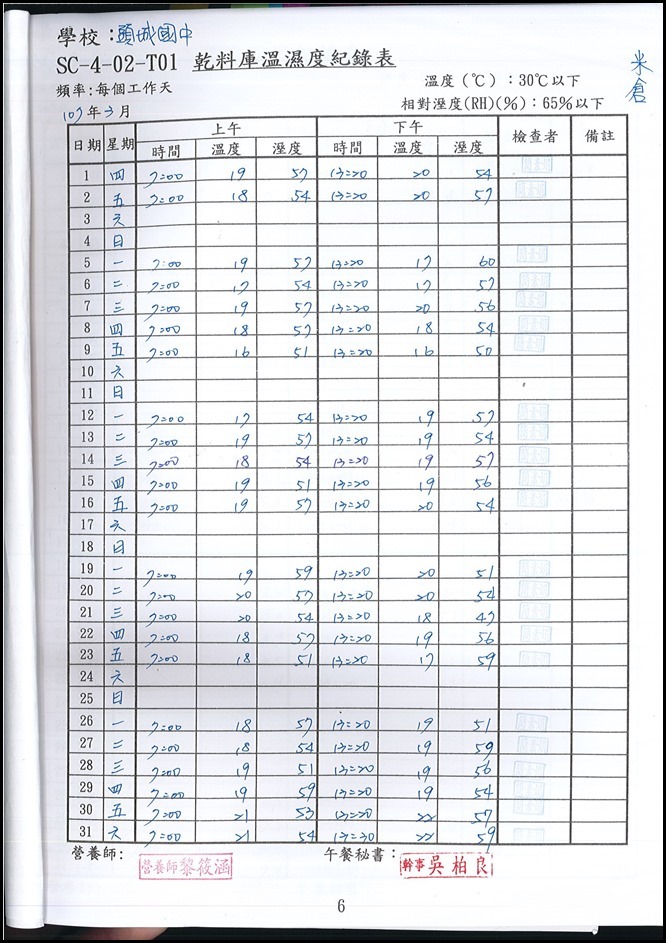 學校：頭城國中
SC-4-02-T01 乾料庫溫濕度紀錄表
米倉
頻率：每個工作天
溫度（℃）：30℃以下
107年3月
相對溼度(RH)(%)：65%以下
日期 星期 上午 下午 檢查者 備註
時間 溫度 溼度 時間 溫度 溼度
1 四 7:00 19 57 13:20 20 54
2 五 7:00 18 54 13:20 20 57
3 六
4 日
5 一 7:00 19 57 13:20 17 60
6 二 7:00 17 54 13:20 17 57
7 三 7:00 19 57 13:20 20 56
8 四 7:00 18 57 13:20 18 54
9 五 7:00 16 51 13:20 16 50
10 六
11 日
12 一 7:00 17 54 13:20 19 57
13 二 7:00 19 57 13:20 19 54
14 三 7:00 18 54 13:20 19 57
15 四 7:00 19 51 13:20 19 56
16 五 7:00 19 57 13:20 20 54
17 六
18 日
19 一 7:00 19 59 13:20 20 51
20 二 7:00 20 57 13:20 20 54
21 三 7:00 20 54 13:20 18 47
22 四 7:00 18 57 13:20 19 56
23 五 7:00 18 51 13:20 17 59
24 六
25 日
26 一 7:00 18 57 13:20 19 51
27 二 7:00 18 54 13:20 19 59
28 三 7:00 19 51 13:20 19 56
29 四 7:00 19 59 13:20 19 54
30 五 7:00 21 53 13:20 22 57
31 六 7:00 21 54 13:30 22 59
營養師： 營養師黎筱涵 午餐秘書： 幹事吳柏良
6